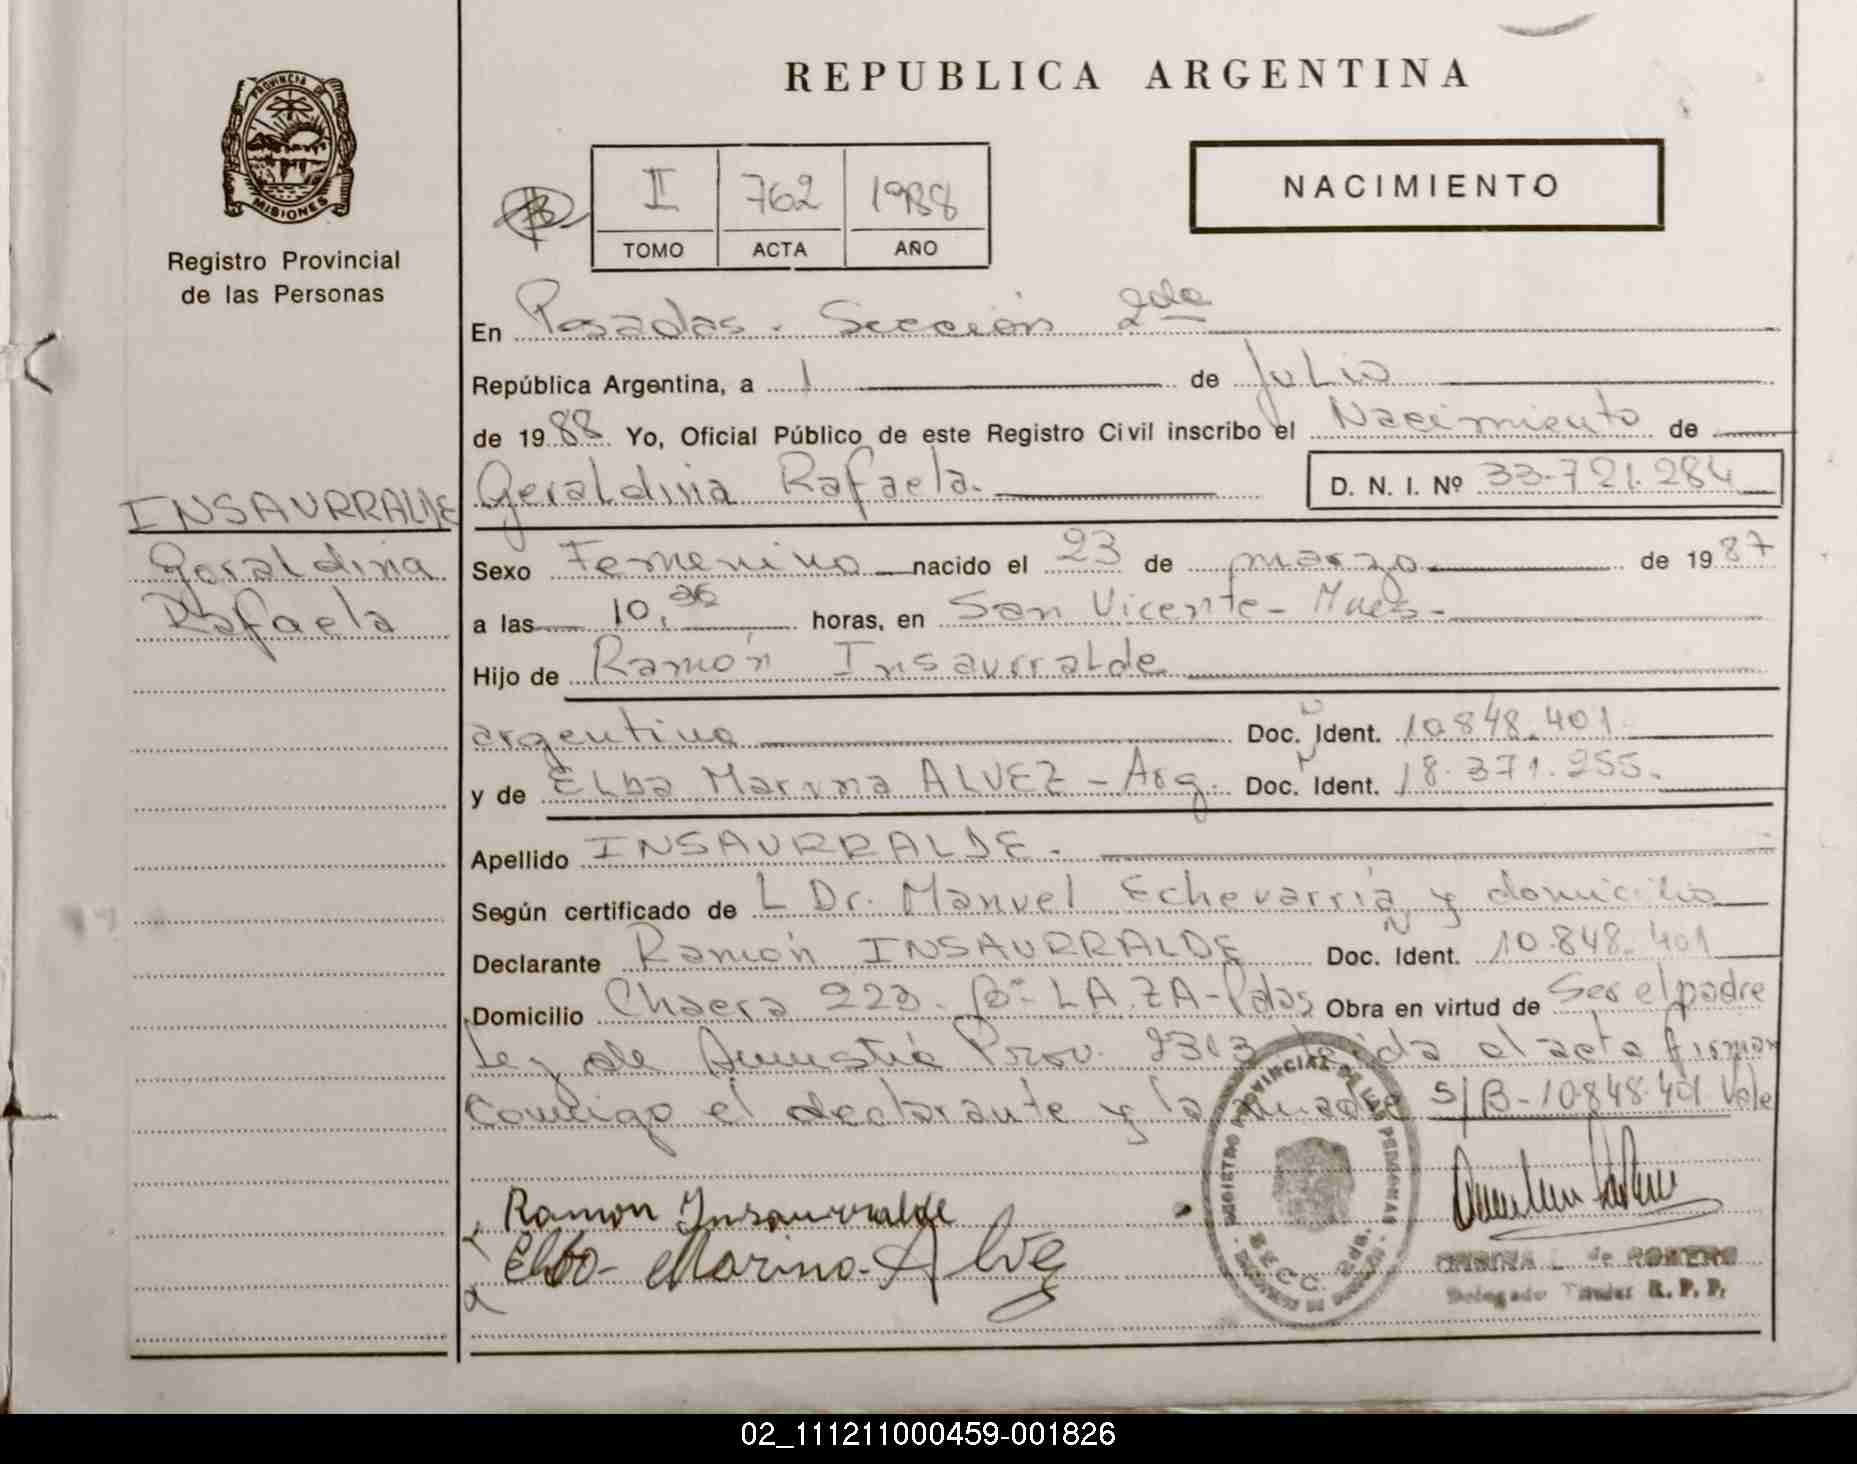 REPUBLICA ARGENTINA
PROVINCIA DE
MISIONES
Registro Provincial
de las Personas
II 762 1988
TOMO ACTA AÑO
NACIMIENTO
En Posadas. Sección 2da
República Argentina, a 1 de Julio
de 1988 Yo, Oficial Público de este Registro Civil inscribo el Nacimiento de
Geraldina Rafaela. D. N. I. Nº 33.721.284
INSAURRALDE
Geraldina
Rafaela
Sexo Femenino nacido el 23 de marzo de 1987
a las 10, horas, en San Vicente - Mnes-
Hijo de Ramón Insaurralde
argentino Doc. Ident. 10.848.401
y de Elba Marina ALVEZ - Arg. Doc. Ident. 18.371.255.
Apellido INSAURRALDE.
Según certificado de L Dr. Manuel Echevarria y domicilio
Declarante Ramón INSAURRALDE Doc. Ident. 10.848.401
Domicilio 223. Bº LA ZA-Pdas Obra en virtud de Ser el padre
Ley de Amnistía Prov. 2313 leida el acta firman
conmigo el declarante y la madre S/B-10.848.401 Vale
REGISTRO PROVINCIAL DE LAS PERSONAS
SECC. 2da.
Ramon Insaurralde
Elba-Marina-Alvez
L. de ROMERO
Delegado Titular R. P. P.
02_111211000459-001826